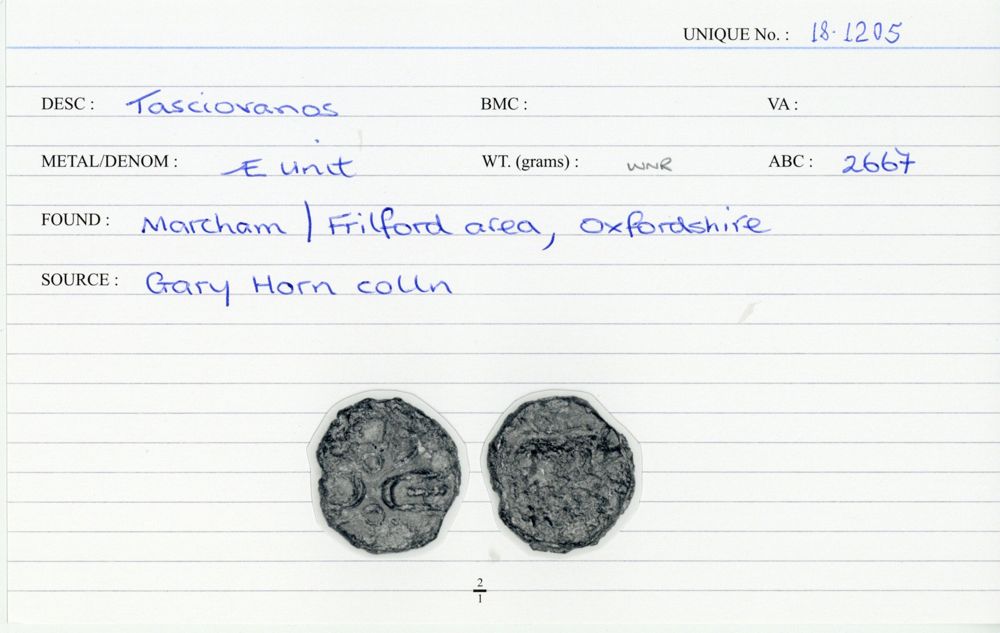 UNIQUE No. : 18.1205
DESC : Tasciovanos BMC : VA :
METAL/DENOM : Æ unit WT. (grams) : WNR ABC : 2667
FOUND : Marcham / Frilford area, Oxfordshire
SOURCE : Gary Horn colln
2
1